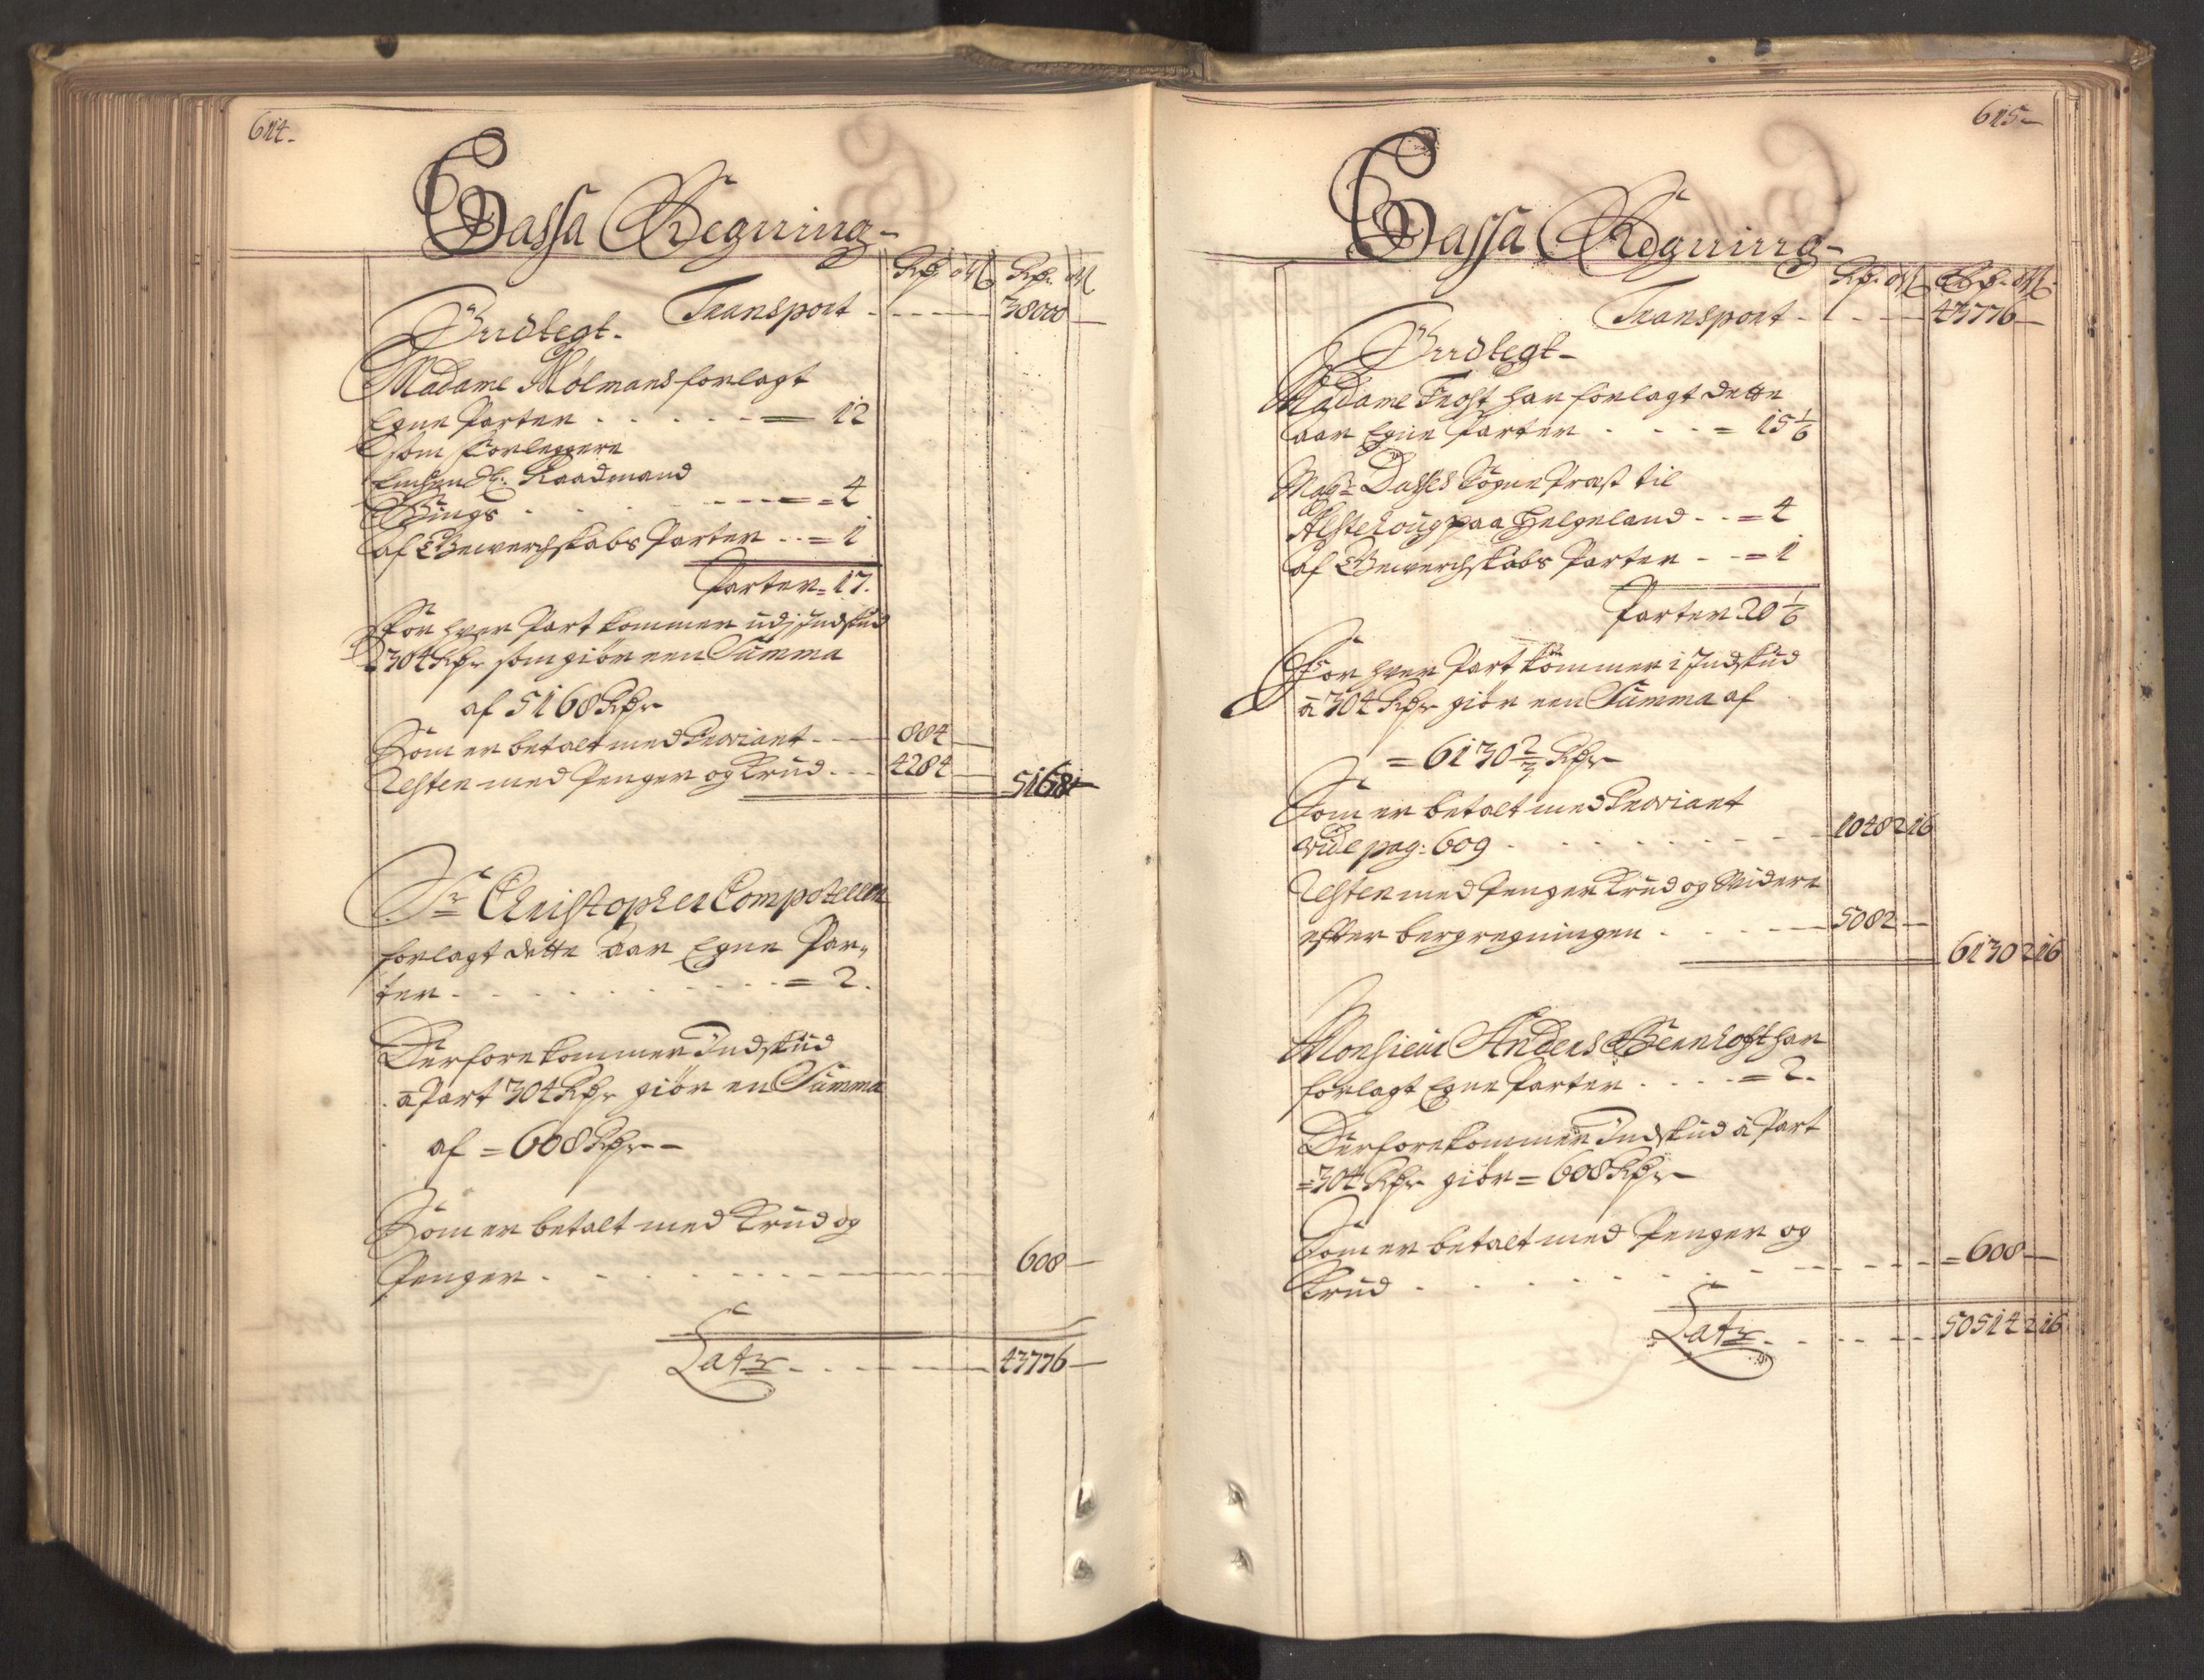 614.
Cassa Regning
Rdr. Mk Rdr. Mk
Transport - - - 38000 —
Indlegt.
Madame Mölmans forlagt
Egne Parter . . . . . = 12
Som Forleggere
Raadmand
Bings . . . . - - - = 4
af Gewerchskabs Parter . . = 1
Parter = 17.
For hver Part kommer udj Indskud
a 304 Rdr som giör een Summa
af 5168 Rdr
Som er betalt med Proviant - - - 884 —
Resten med Penger og Krud . . - 4284 — 5168 —
Sr Christopher Compotellen
forlagt dette Aar Egne Par-
ter . . . . . . . . = 2.
Derfore kommer Indskud
a Part 304 Rdr giör en Summa
af = 608 Rdr —
Som er betalt med Krud og
Penger . . . . . . . - - - 608 —
Latr - . . - - - 43776 —
615 —
Cassa Regning
Rdr. Mk Rdr. Mk
Transport - . - - 43776 —
Indlegt —
Madame Frost har forlagt dette
aar Egne Parter . . . = 15 1/6
Magr Dasses Sogne Præst til
Alstehoug paa Helgeland - - = 4
af Gewerchskabs Parter - - = 1
Parter 20 1/6
For hver Part kommer i Indskud
a 304 Rdr giör een Summa af
= 6130 2/3 Rdr
Som er betalt med Proviant
vide pag: 609 . . . . . . . - - 1048 2 16
Resten med Penger Krud og Videre
efter bergregningen . . . . - - 5082 — 6130 2 16
Monsieur Anders Bernhoft har
forlagt Egne Parter . . . . = 2.
Derfore kommer Indskud a Part
= 304 Rdr giör = 608 Rdr —
Som er betalt med Penger og
Krud . . . . . . . . - - - - = 608 —
Latr . . . - - - 50514 2 16